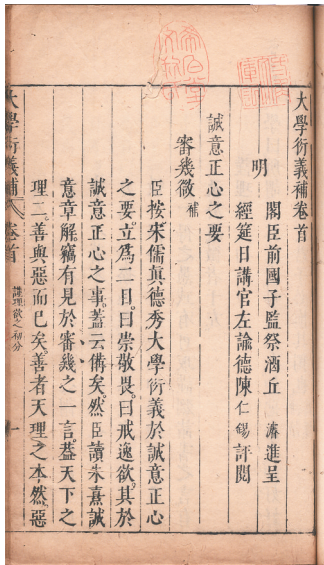 大學衍義補卷首
明
閣臣前國子監祭酒丘　濬進呈
經筵日講官左諭德陳仁錫評閱
誠意正心之要
審幾微補
臣按宋儒真德秀大學衍義於誠意正心
之要立為二目曰崇敬畏曰戒逸欲其於
誠意正心之事葢云備矣然臣讀朱熹誠
意章解竊有見於審幾之一言葢天下之
理二善與惡而已矣善者天理之本然惡
謹理欲之初分
大學衍義補
卷首
一